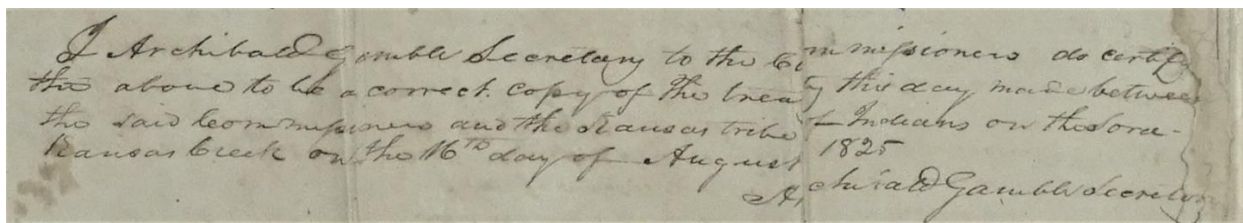 I Archibald Gamble Secretary to the Commissioners do certify
the above to be a correct copy of the treaty this day made between
the said Commissioners and the Kansas tribe of Indians on the Sora-
Kansas Creek on the 16th day of August 1825
Archibald Gamble Secretary